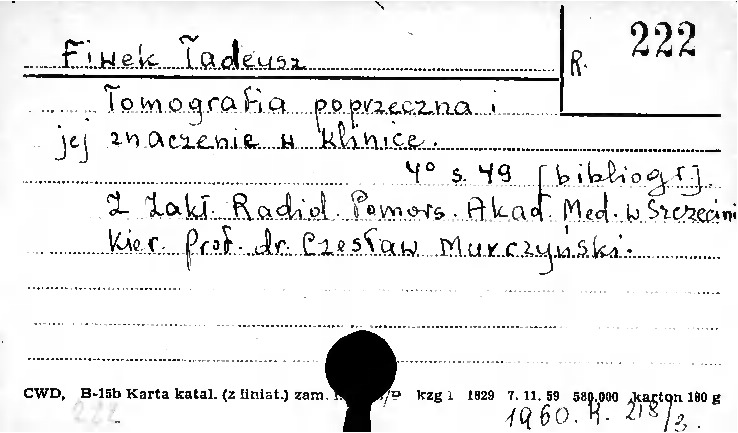 Fiwek Tadeusz
R. 222
Tomografia poprzeczna i
jej znaczenie w klinice.
4° s. 49 [bibliogr].
Z Zakł. Radiol. Pomors. Akad. Med. w Szczecini
Kier. Prof. dr. Czesław Murczyński.
CWD, B-15b Karta katal. (z liniat.) zam. kzg 1 1829 7. 11. 59 580.000 karton 180 g
222
1960. K. 218/3.